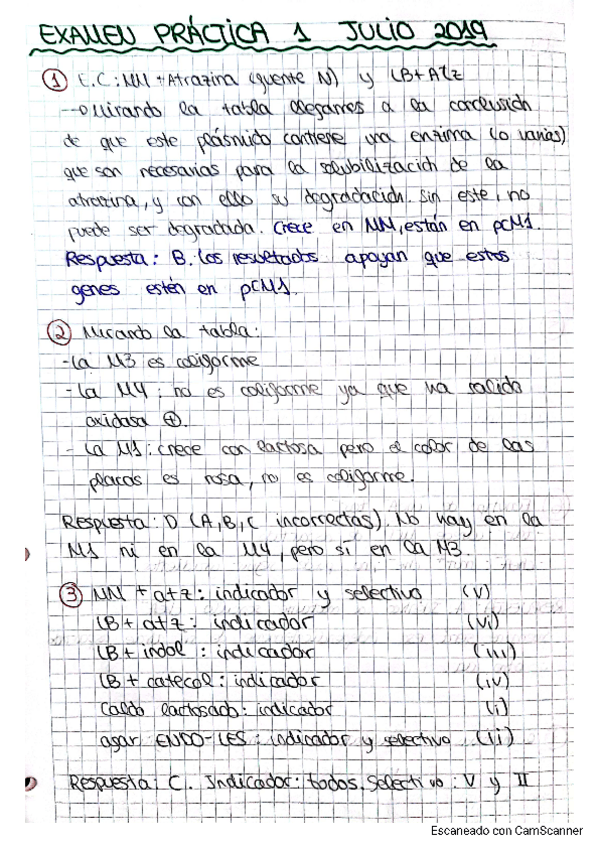 EXAMEN PRÁCTICA 1 JULIO 2019
① E.C: MM + Atrazina (fuente N) y LB + Atz
Mirando la tabla llegamos a la conclusión
de que este plásmido contiene una enzima (o varias)
que son necesarias para la solubilización de la
atrazina, y con ello su degradación. Sin este, no
puede ser degradada. Crece en MM, están en pCM1.
Respuesta: B. Los resultados apoyan que estos
genes estén en pCM1.
② Mirando la tabla:
- La M3 es coliforme
- La M4: no es coliforme ya que ha salido
oxidasa ⊕.
- La M1: crece con lactosa pero el color de las
placas es rosa, no es coliforme.
Respuesta: D (A, B, C incorrectas). No hay en la
M1 ni en la M4, pero sí en la M3.
③ MM + atz: indicador y selectivo (v)
LB + atz: indicador (vi)
LB + indol: indicador (iii)
LB + catecol: indicador (iv)
Caldo lactosado: indicador (i)
agar ENDO-LES: indicador y selectivo (ii)
Respuesta: C. Indicador: todos. Selectivo: V y II
Escaneado con CamScanner